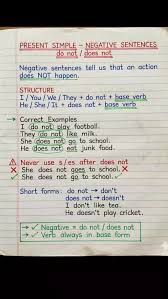 PRESENT SIMPLE – NEGATIVE SENTENCES
do not / does not
Negative sentences tell us that an action
does NOT happen.
STRUCTURE
I / You / We / They + do not + base verb
He / She / It + does not + base verb
→ Correct Examples
I (do not) play football.
They (do not) like milk.
She (does not) go to school.
He (does not) eat junk food.
⚠ Never use s/es after does not
✗ She does not goes to school. ✗
✓ She does not go to school. ✓
Short forms: do not → don't
does not → doesn't
I don't like tea.
He doesn't play cricket.
→ ✓ Negative = do not / does not
→ ✓ Verb always in base form